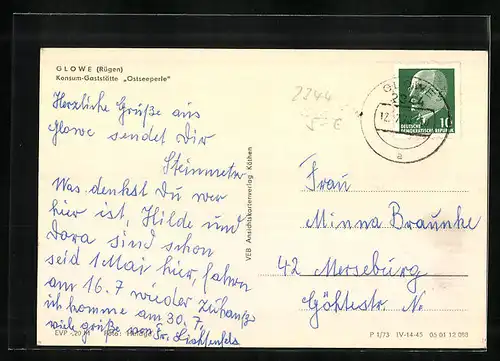 GLOWE (Rügen)
Konsum-Gaststätte „Ostseeperle"
Herzliche Grüße aus
Glowe sendet Dir
Steinmetz
Was denkst Du wer
hier ist, Hilde und
Dora sind schon
seid 1 Mai hier, fahren
am 16.7 wieder zuhause
ich komme am 30.7,
viele grüße von Fr. Lichtenfels
EVP -,20 M
Foto:
VEB Ansichtskartenverlag Köthen
2244
5-€
GLOWE
12.
a
DEUTSCHE
DEMOKRATISCHE REPUBLIK
10
Frau
Minna Braunke
42 Merseburg
Göhtestr. N.
P 1/73 IV-14-45 05 01 12 088